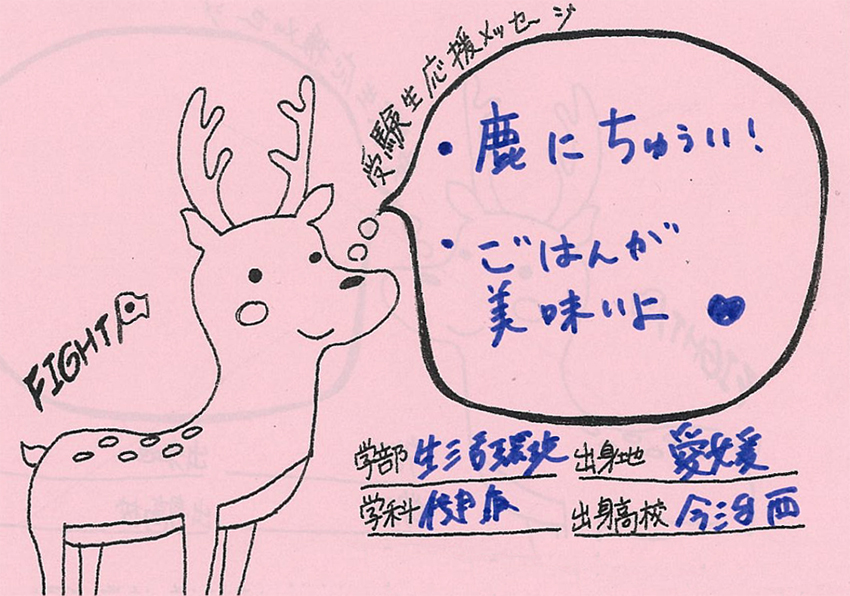 受験生応援メッセージ
・鹿にちゅうい!
・ごはんが
美味いよ ♥
FIGHT
学部 生活環境
出身地 愛媛
学科 健康
出身高校 今治西